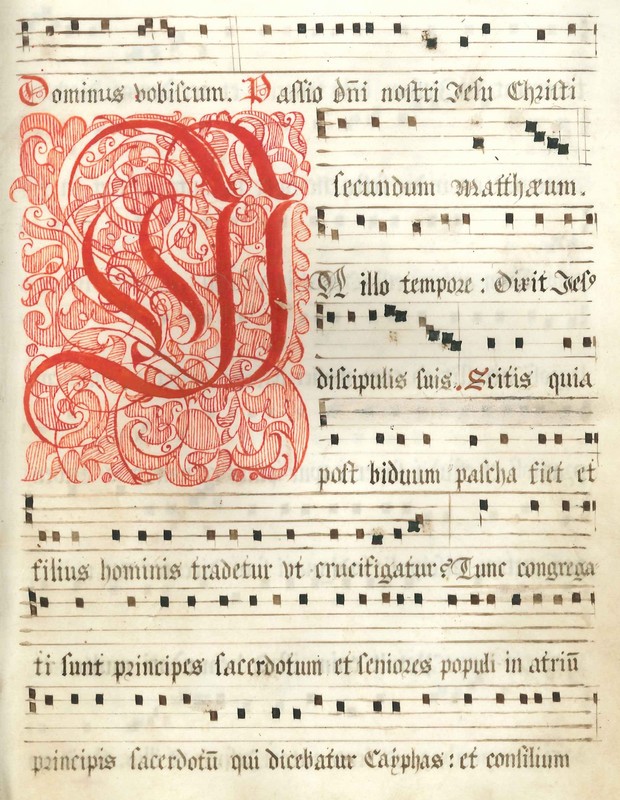 Dominus vobiscum. Passio dñi nostri Jesu Christi
secundum Matthæum.
IN illo tempore : Dixit Jesꝰ
discipulis suis. Scitis quia
post biduum pascha fiet et
filius hominis tradetur vt crucifigatur? Tunc congrega
ti sunt principes sacerdotum et seniores populi in atriū
principis sacerdotū qui dicebatur Cayphas : et consilium